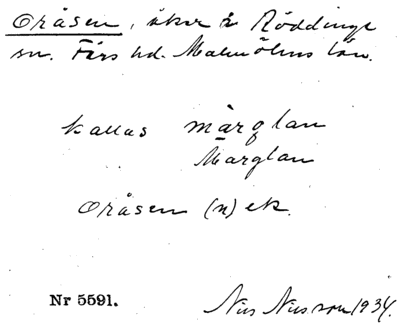 Oråsen, åker i Röddinge
sn. Färs hd. Malmöhus län.
kallas märglan
Märglan
Oråsen (n) ek.
Nr 5591.
Nils Nilsson 1934.